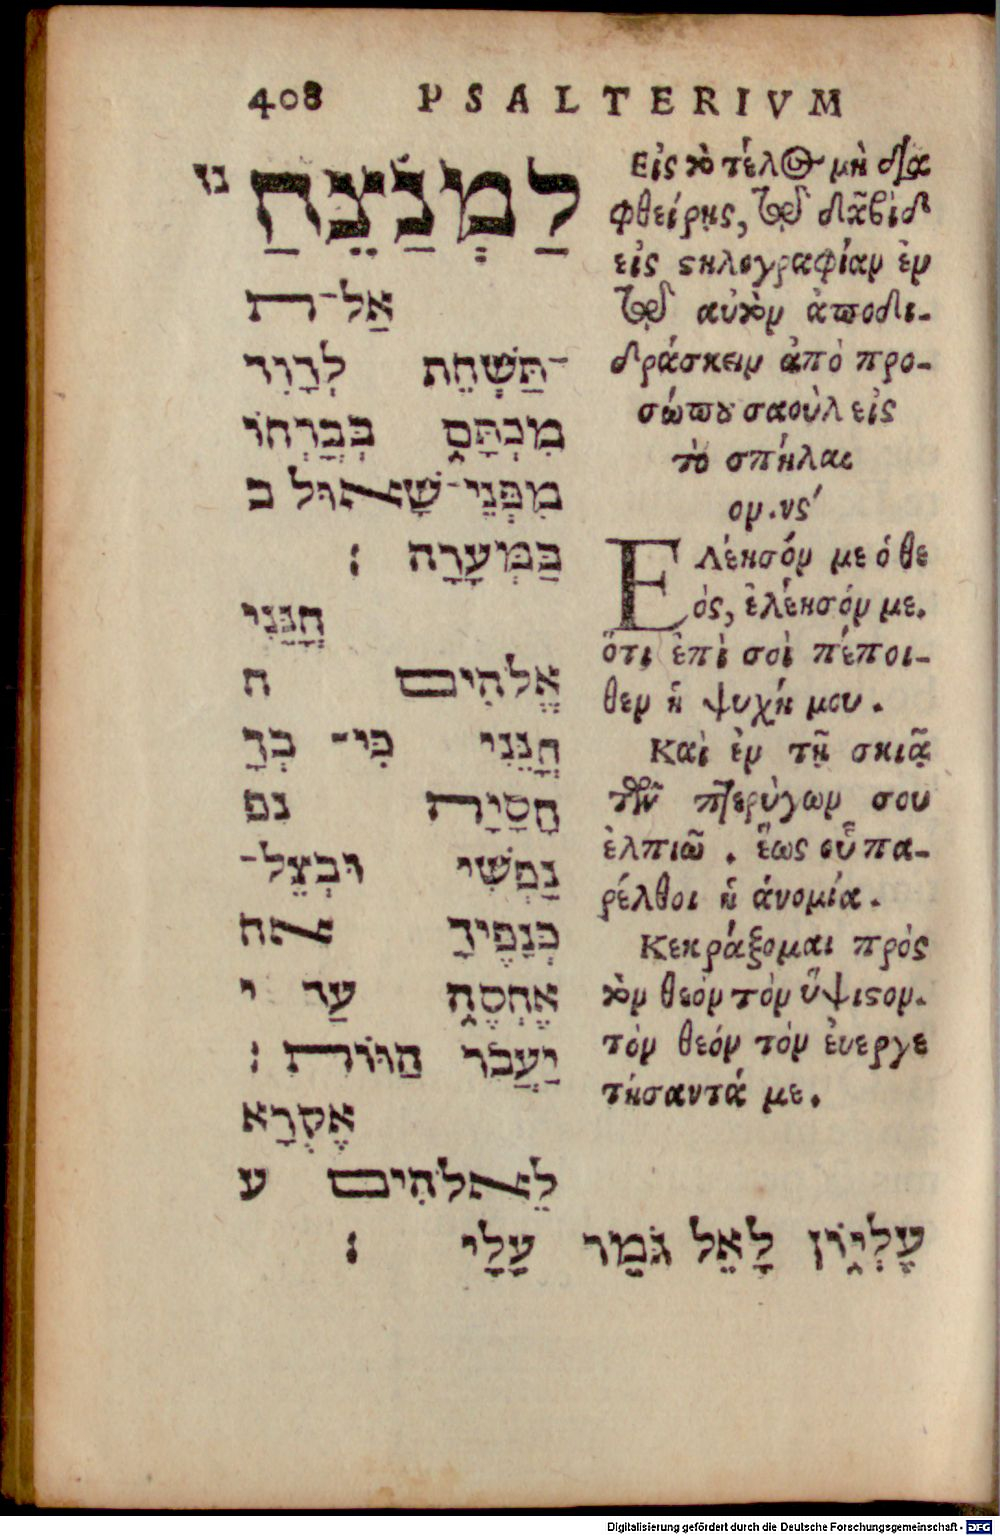 408 PSALTERIVM
נז לַמְנַצֵּחַ
אַל־ת
־תַּשְׁחֵת לְדָוִד
מִכְתָּם בְּבָרְחוֹ
מִפְּנֵי־שָׁאוּל ב
בַּמְּעָרָה׃
חָנֵּנִי
אֱלֹהִים ח
חָנֵּנִי כִּי־ בְךָ
חָסָיָה נפ
נַפְשִׁי וּבְצֵל־
כְּנָפֶיךָ אח
אֶחְסֶה עַד י
יַעֲבֹר הַוּוֹת׃
אֶקְרָא
לֵאלֹהִים ע
עֶלְיוֹן לָאֵל גֹּמֵר עָלָי׃
Εἰς τὸ τέλος μὴ δια
φθείρης, τῷ δαβὶδ
εἰς στηλογραφίαν ἐν
τῷ αὐτὸν ἀποδι-
δράσκειν ἀπὸ προ-
σώπου σαοὺλ εἰς
τὸ σπήλαι
ον. νς´
Ελέησόν με ὁ θε
ὸς, ἐλέησόν με.
ὅτι ἐπὶ σοὶ πέποι-
θεν ἡ ψυχή μου.
Καὶ ἐν τῇ σκιᾷ
τῶν πτερύγων σου
ἐλπιῶ. ἕως οὗ πα-
ρέλθοι ἡ ἀνομία.
Κεκράξομαι πρὸς
τὸν θεὸν τὸν ὕψιστον.
τὸν θεὸν τὸν ἐυεργε
τήσαντά με.
Digitalisierung gefördert durch die Deutsche Forschungsgemeinschaft - DFG